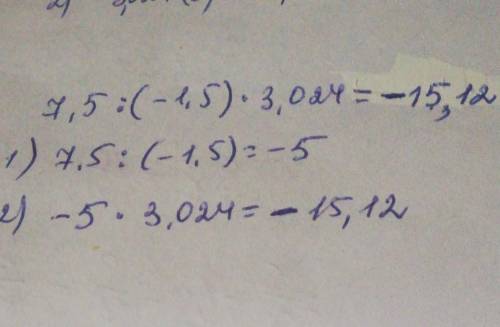 7,5 : (-1,5) · 3,024 = -15,12
1) 7,5 : (-1,5) = -5
2) -5 · 3,024 = -15,12